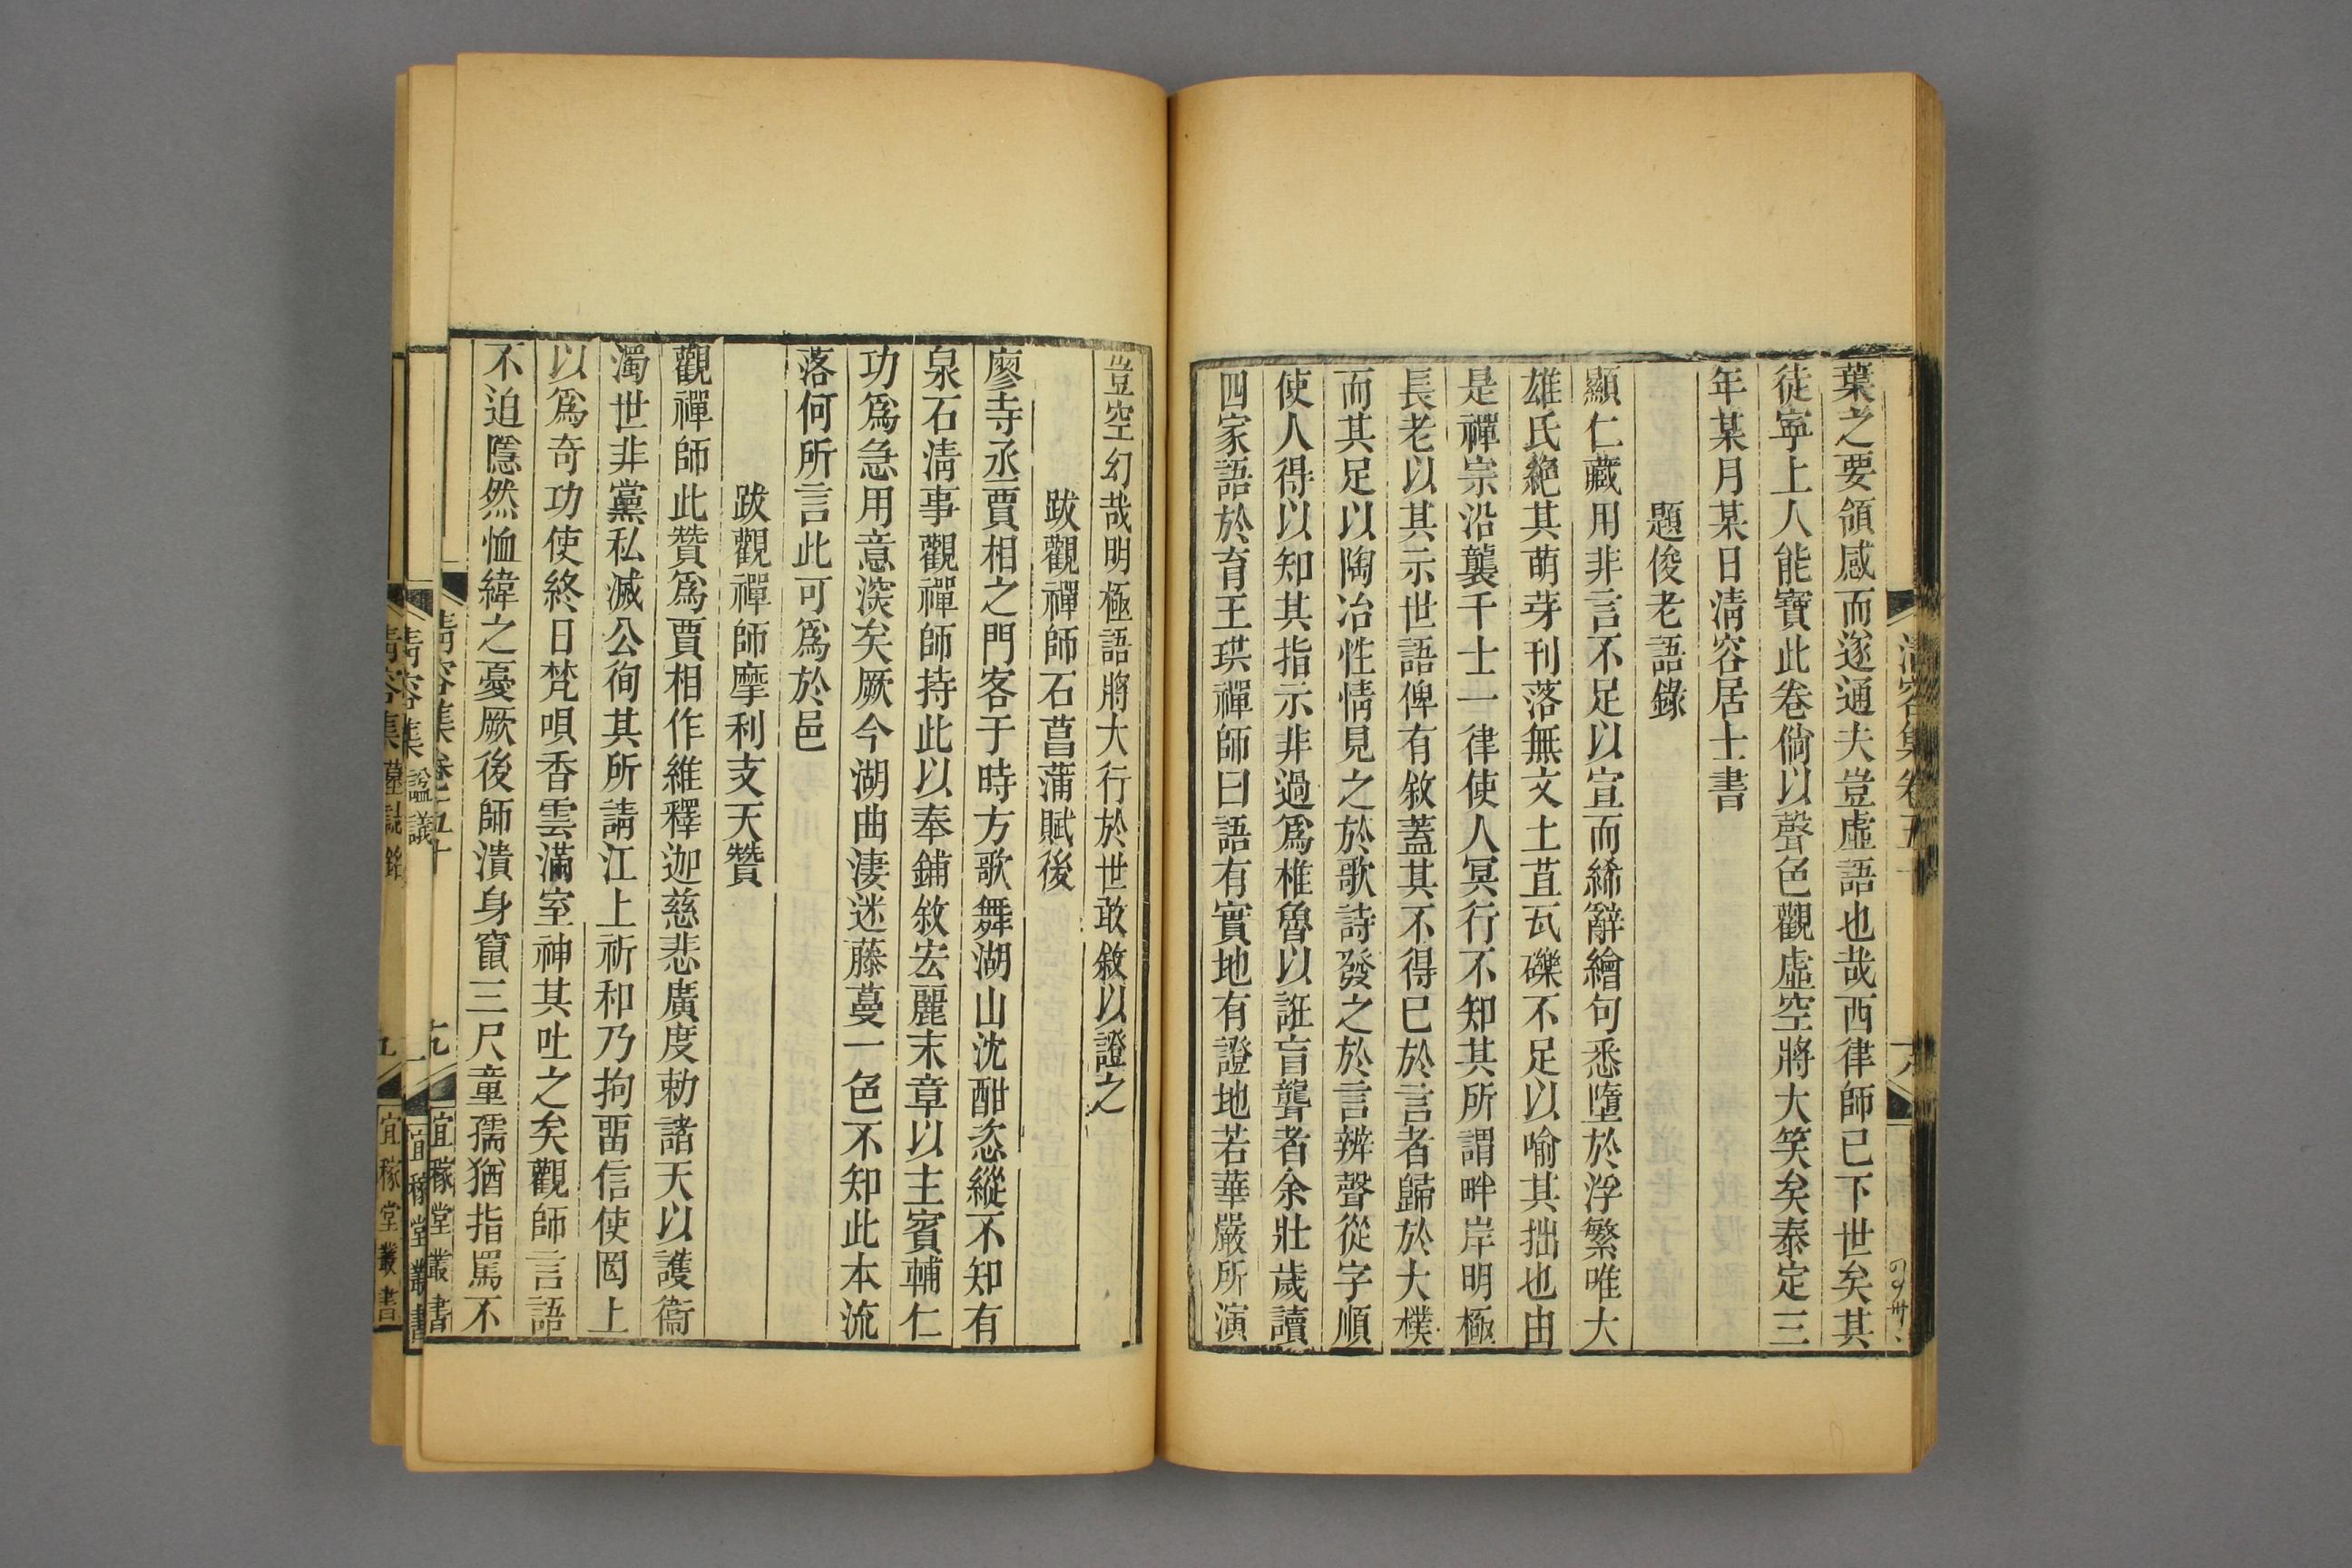 葉之要領感而遂通夫豈虛語也哉西律師已下世矣其
徒寧上人能寶此卷倘以聲色觀虛空將大笑矣泰定三
年某月某日清容居士書
題俊老語錄
顯仁藏用非言不足以宣而絺辭繪句悉墮於浮繁唯大
雄氏絶其萌芽刊落無文土苴瓦礫不足以喻其拙也由
是禪宗沿襲千士一律使人冥行不知其所謂畔岸明極
長老以其示世語俾有敘蓋其不得已於言者歸於大樸
而其足以陶冶性情見之於歌詩發之於言辨聲從字順
使人得以知其指示非過爲椎魯以誑盲聾者余壯歲讀
四家語於育王珙禪師曰語有實地有證地若華嚴所演
豈空幻哉明極語將大行於世敢敘以證之
跋觀禪師石菖蒲賦後
廖寺丞賈相之門客于時方歌舞湖山沈酣恣縱不知有
泉石淸事觀禪師持此以奉鋪敘宏麗末章以主賓輔仁
功爲急用意深矣厥今湖曲淒迷藤蔓一色不知此本流
落何所言此可爲於邑
跋觀禪師摩利支天贊
觀禪師此贊爲賈相作維釋迦慈悲廣度勅諸天以護衞
濁世非黨私滅公徇其所請江上祈和乃拘畱信使罔上
以爲奇功使終日梵唄香雲滿室神其吐之矣觀師言語
不迫隱然恤緯之憂厥後師潰身竄三尺童孺猶指罵不
清容集卷五十
宜稼堂叢書
清容集
諡議
一
宜稼堂叢書
清容集
墓誌銘
九
宜稼堂叢書